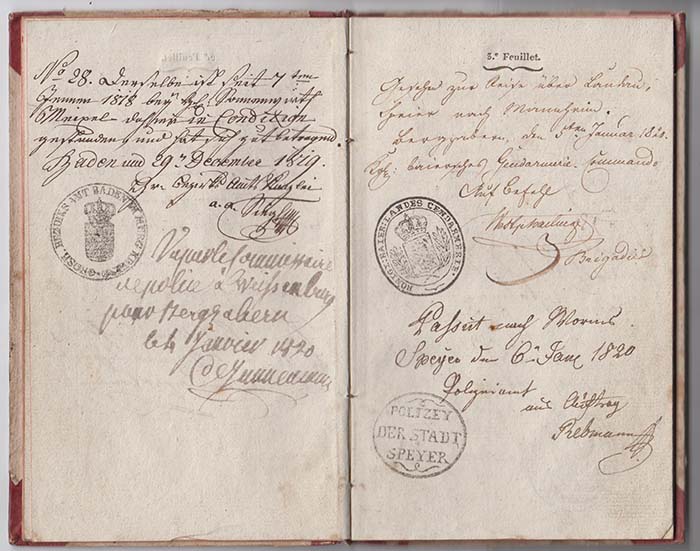 No 28. Derselbe ist seit 7ten
Jenner 1818 bey
dahier in Condition
gestanden, und hat sich gut betragend.
Baden und 29n Decembre 1819.
Gr. Bezirks Amts
a. a.
GROSH. BEZIRKS AMT BADEN IM
Vu par le Commissaire
de police à Wissembourg
pour Bergzabern
le 4 Janvier 1820
3.e Feuillet.
Gesehn zur Reise über Landau,
Speier nach Mannheim.
Bergzabern, den 5ten Januar 1820.
Kgl: baierisches Gendarmerie Commando
Auf Befehl
Brigadier
Passirt nach Worms.
Speyer den 6n Janr 1820
Polizeiamt
aus Auftrag
Rebmann
POLIZEY
DER STADT
SPEYER